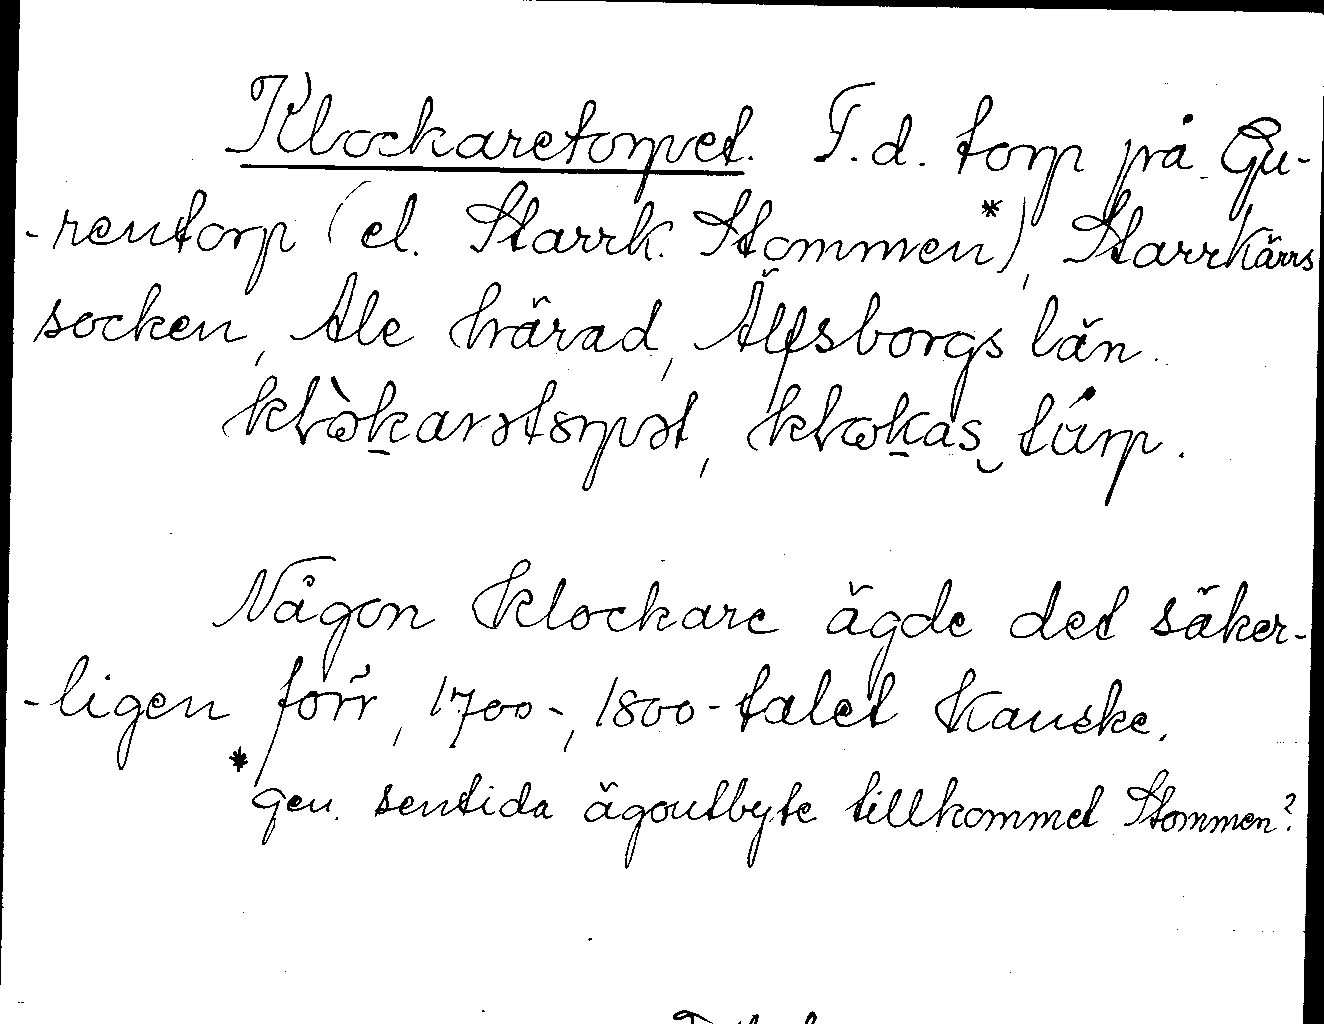 Klockaretorpet. F.d. torp på Gu-
-rentorp (el. Starrk. Stommen*), Starrkärrs
socken, Ale härad, Älfsborgs län.
Någon klockare ägde det säker-
-ligen förr, 1700-, 1800-talet kanske.
* gen. sentida ägoutbyte tillkommet Stommen?